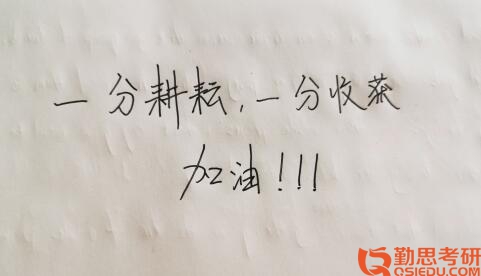 一分耕耘,一分收获
加油!!!
勤思考研
QSIEDU.COM